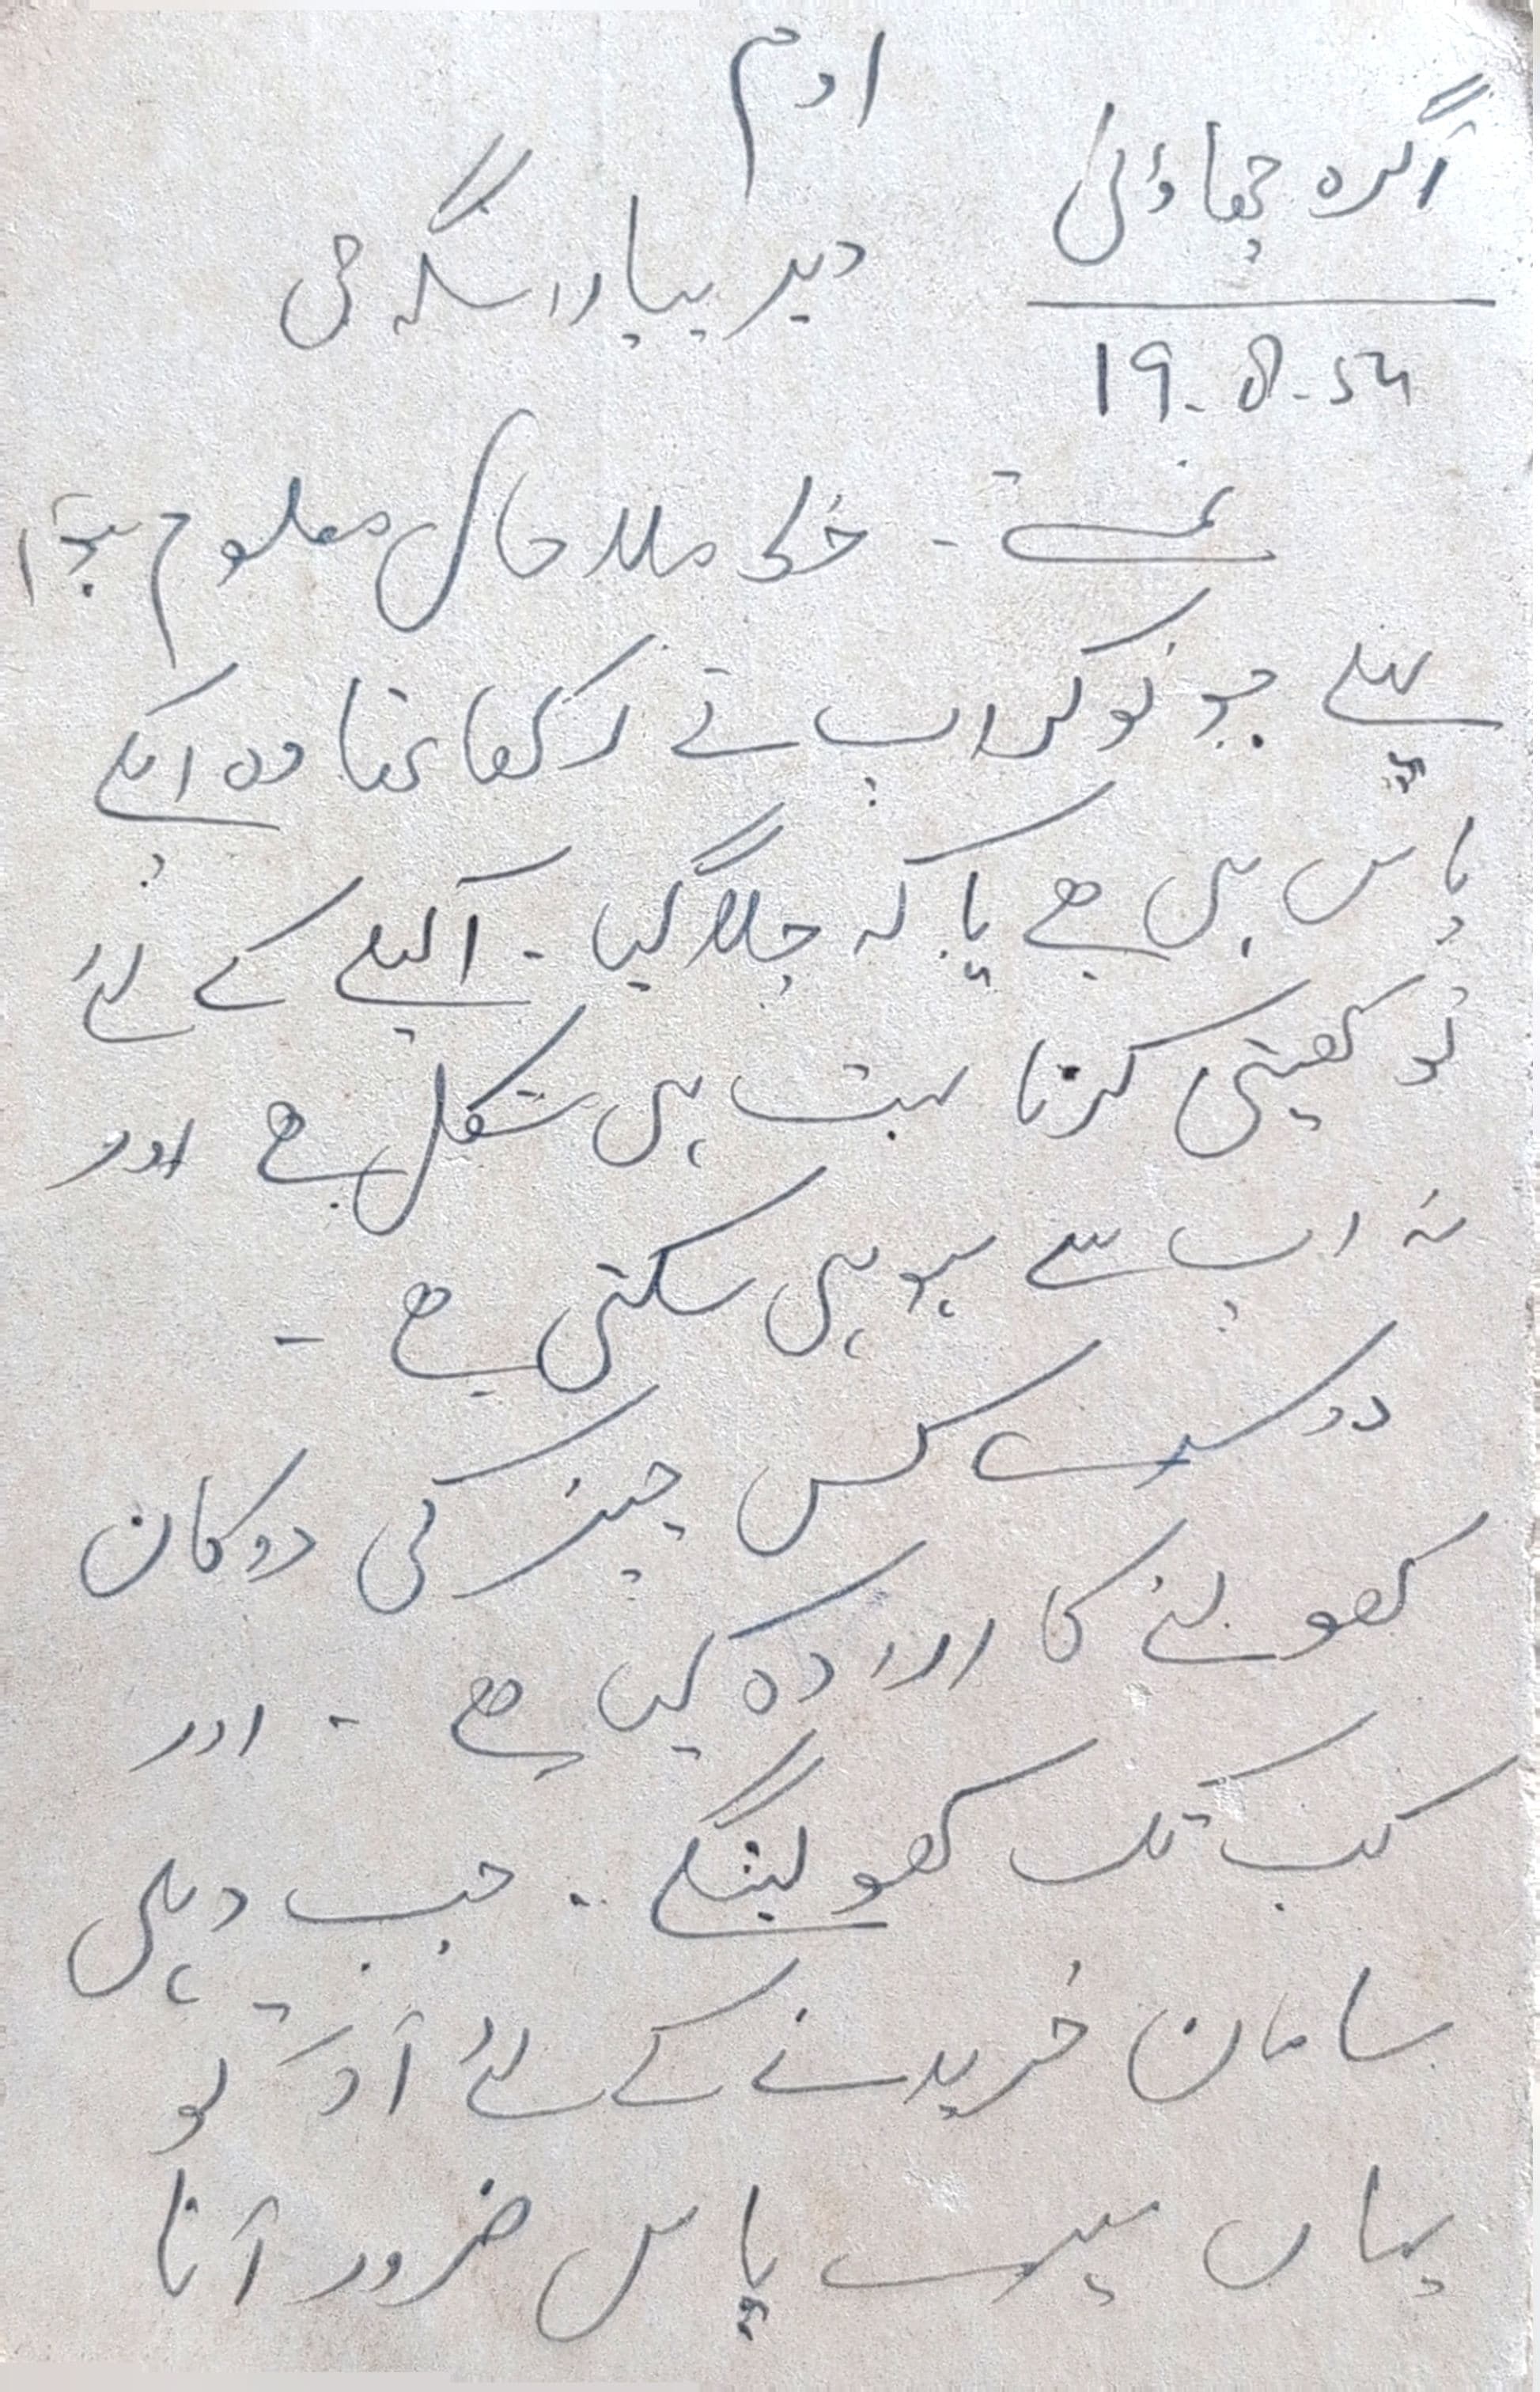 اوم
آگرہ چھاؤنی
ڈیر پیارا سنگھ جی
19-8-54
نمستے - خط ملا حال معلوم ہوا
پہلے جو نوکر اپ نے رکھا تھا وہ اپکے
پاس ہی ہے یا کہ چلا گیا - اکیلے کے لئے
تو کھیتی کرنا بہت ہی مشکل ہے اور
نہ اپ سے ہو ہی سکتی ہے -
دوسرے کس چیز کی دوکان
کھولنے کا ارادہ کیا ہے - اور
کب تک کھولینگے - جب دہلی
سامان خریدنے کے لئے آؤ تو
یہاں میرے پاس ضرور آنا